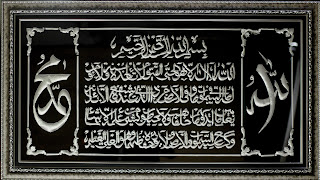 بسم الله الرحمن الرحيم
الله لا إله إلا هو الحي القيوم لا تأخذه سنة ولا نوم
له ما في السموات وما في الأرض من ذا الذي يشفع عنده إلا بإذنه
يعلم ما بين أيديهم وما خلفهم ولا يحيطون بشيء من علمه إلا بما شاء
وسع كرسيه السموات والأرض ولا يؤده حفظهما وهو العلي العظيم
الله
محمد